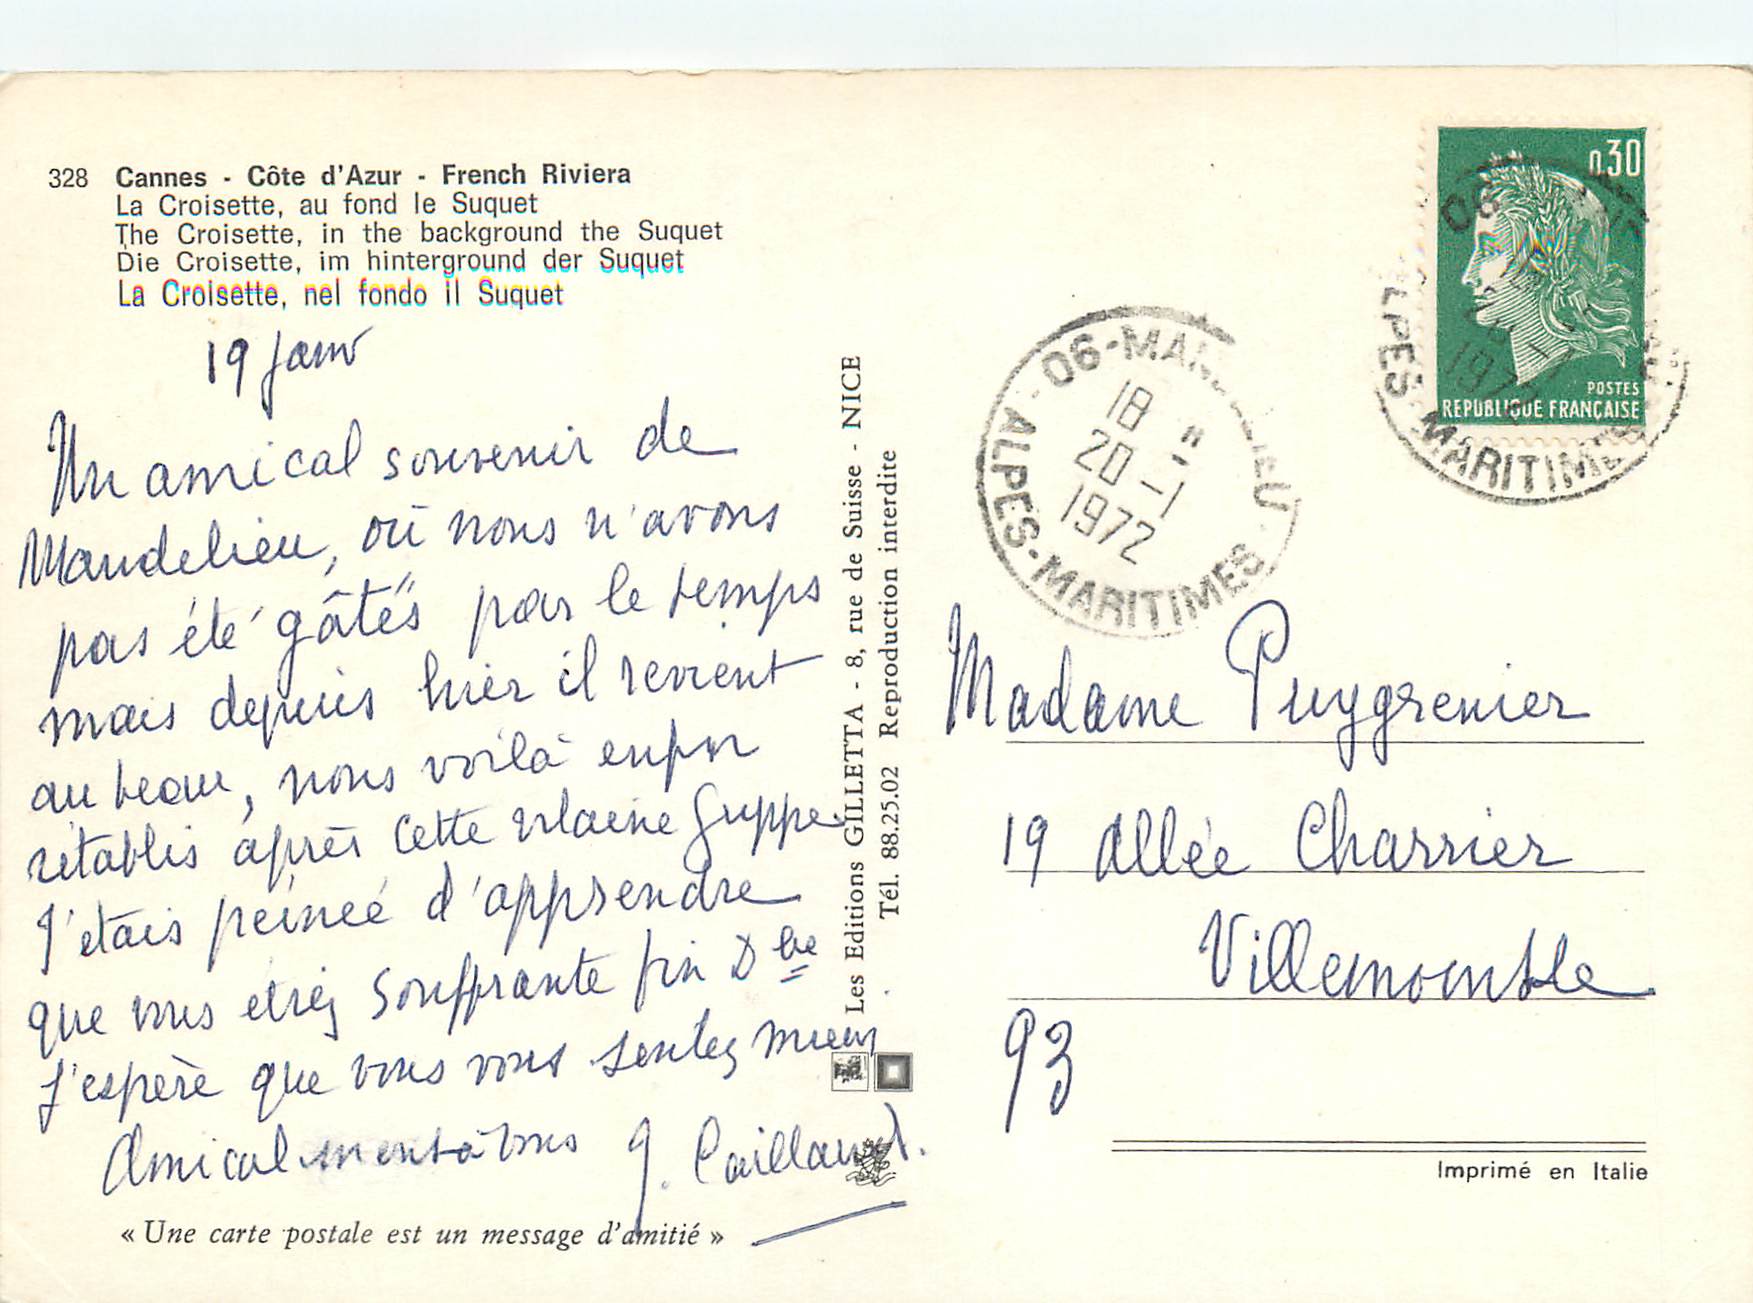 328 Cannes - Côte d'Azur - French Riviera
La Croisette, au fond le Suquet
The Croisette, in the background the Suquet
Die Croisette, im hinterground der Suquet
La Croisette, nel fondo il Suquet
19 janv
Un amical souvenir de
Mandelieu, où nous n'avons
pas été gâtés par le temps
mais depuis hier il revient
au beau, nous voilà enfin
rétablis après cette vilaine grippe
J'étais peinée d'apprendre
que vous etriez souffrante fin Dbre
J'espère que vous vous sentez mieux
Amicalement à vous J. Caillaud.
« Une carte postale est un message d'amitié »
Les Editions GILLETTA - 8, rue de Suisse - NICE
Tél. 88.25.02 Reproduction interdite
0,30
POSTES
REPUBLIQUE FRANÇAISE
06
ALPES-MARITIMES
20-1
1972
06-MANDELIEU
18 H
20-1
1972
ALPES-MARITIMES
Madame Puygrenier
19 Allée Charrier
Villemomble
93
Imprimé en Italie